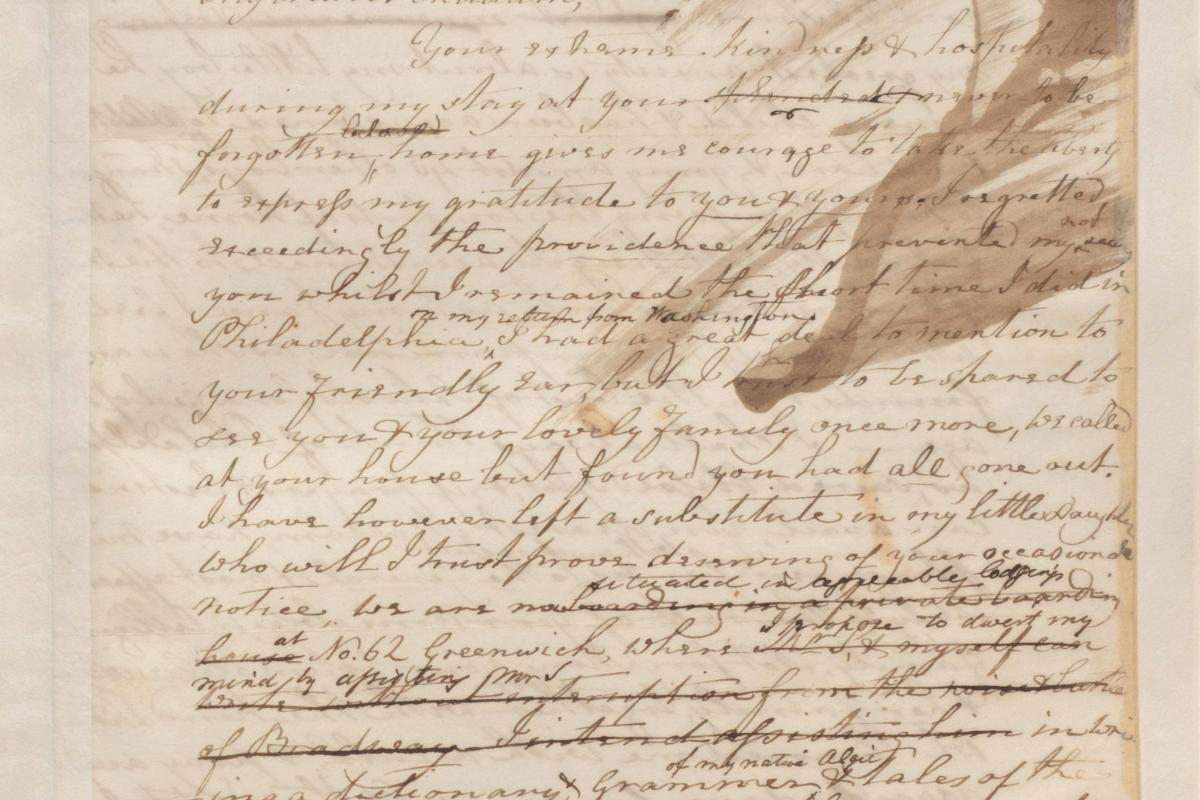 Your extreme kindness & hospitality
during my stay at your splendid & never to be
beloved
forgotten, home gives me courage to take the liberty
to express my gratitude to you & yours. I regretted
not
exceedingly the providence that prevented my see
you whilst I remained the short time I did in
on my return from Washington
Philadelphia, I had a great deal to mention to
your friendly ear, but I trust to be spared to
see you & your lovely family once more, we called
at your house but found you had all gone out.
I have however left a substitute in my little daughter
who will I trust prove deserving of your occasional
situated in agreeable lodgings
notice, we are now boarding in a private boarding
I propose to divert my
at
house No. 62 Greenwich, where Mr S, & myself can
mind by assisting Mr S
write without interruption from the noise & bustle
of Bradway I intend assisting him in wri
of my native Algic
ing a dictionary & Grammer & tales of the